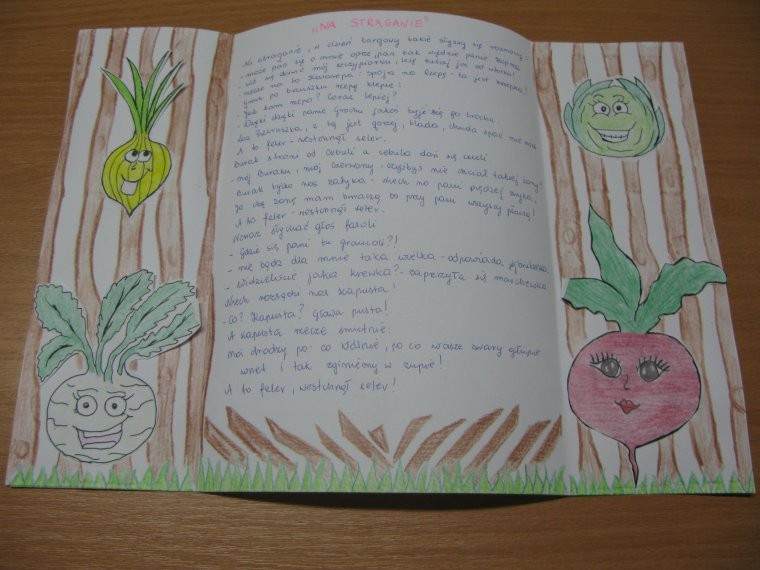 „NA STRAGANIE"
Na straganie, w dzień targowy takie słyszy się rozmowy:
- może pan się o mnie oprze, pan tak więdnie panie koprze.
- Cóż się dziwić mój szczypiorku, leżę tutaj już od wtorku!
rzecze na to kalarepa: spójrz na rzepę - ta jest krzepka!
Groch po brzuszku rzepę klepie:
Jak tam rzepo? Coraz lepiej?
- Dzięki dzięki panie Grochu jakoś żyje się po trochu.
Lecz Pietruszka, z tą jest gorzej, blada, chuda spać nie może
A to feler - westchnął seler.
Burak stroni od cebuli a cebula doń się czuli
- mój Buraku, mój czerwony - czybyś nie chciał takiej żony?
Burak tylko nos zatyka - niech no pani prędzej zmyka,
Ja chcę żonę mam buraczą bo przy pani wszyscy płaczą!
A to feler - westchnął seler.
Naraz słychać głos fasoli
- Gdzie się pani tu gramoli?!
- nie bądź dla mnie taka wielka - odpowiada jej brukselka
- Widzieliście jaka krewka? - zaperzyła się marchewka
Niech rozsądzi nas kapusta!
- Co? Kapusta? Głowa pusta!
A kapusta rzecze smutnie:
moi drodzy po co kłótnie, po co wasze swary głupie
wnet i tak zginiemy w zupie!
A to feler, westchnął seler!